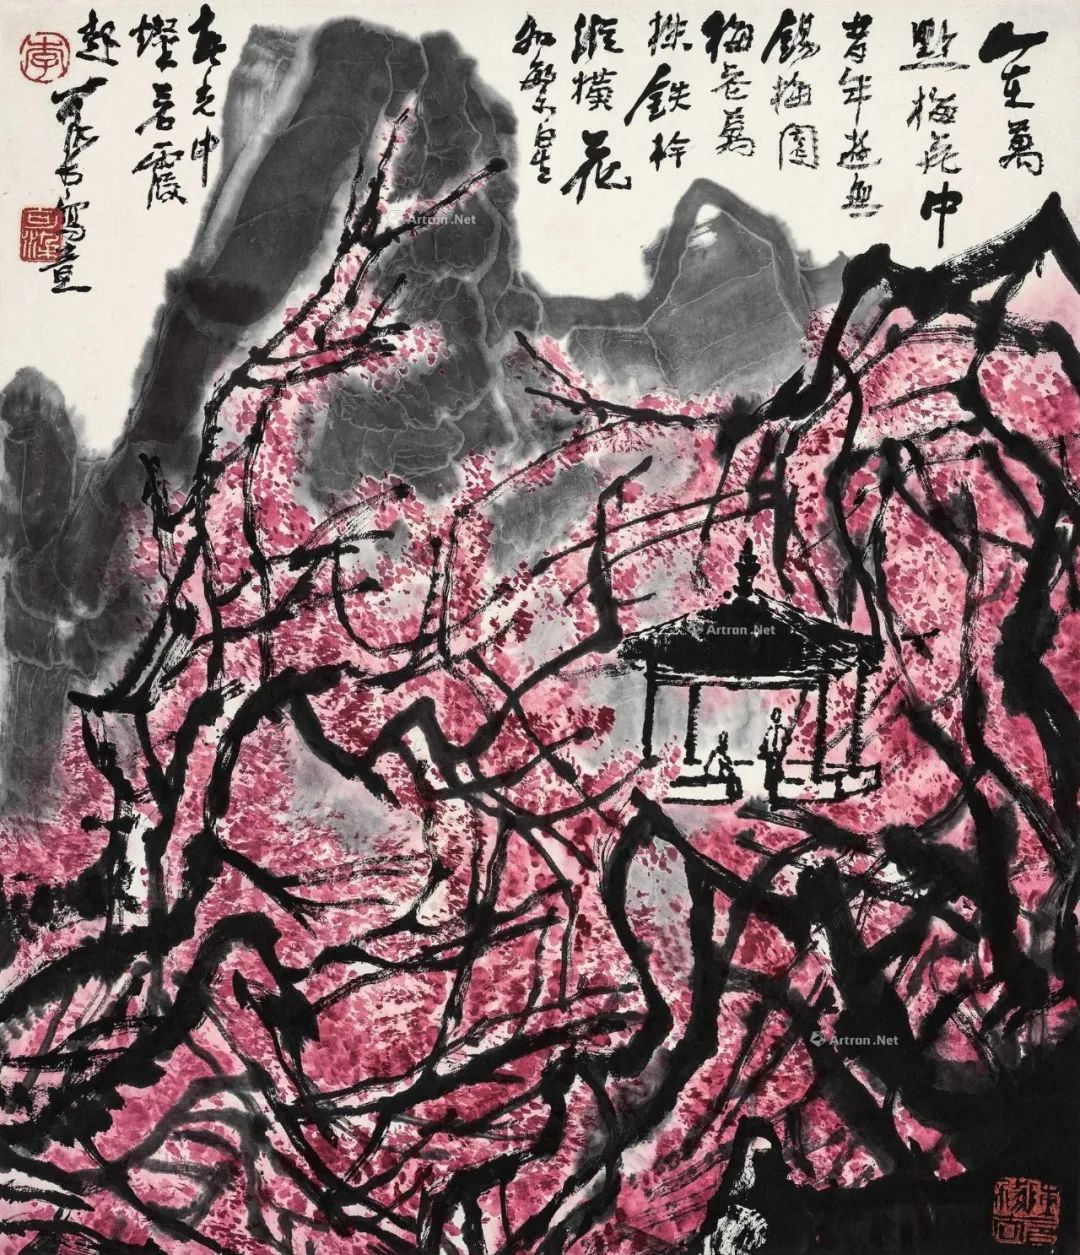 人在萬
點梅花中
昔年遊無
錫梅園
梅花萬
株鐵幹
縱橫花
如繁星
春光中
燦若霞
起 可染寫意
李
可染
Artron.Net
Artron.Net
Artron.Net